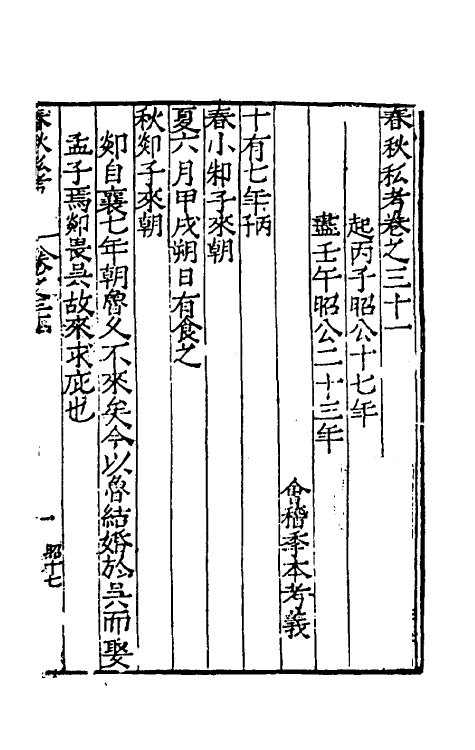 春秋私考卷之三十一
起丙子昭公十七年
盡壬午昭公二十三年
會稽季本考義
十有七年丙子
春小邾子來朝
夏六月甲戌朔日有食之
秋郯子來朝
郯自襄七年朝魯久不來矣今以魯結婚於吳而娶
孟子焉郯畏吳故來求庇也
春秋私考
卷之三十一
一
昭十七